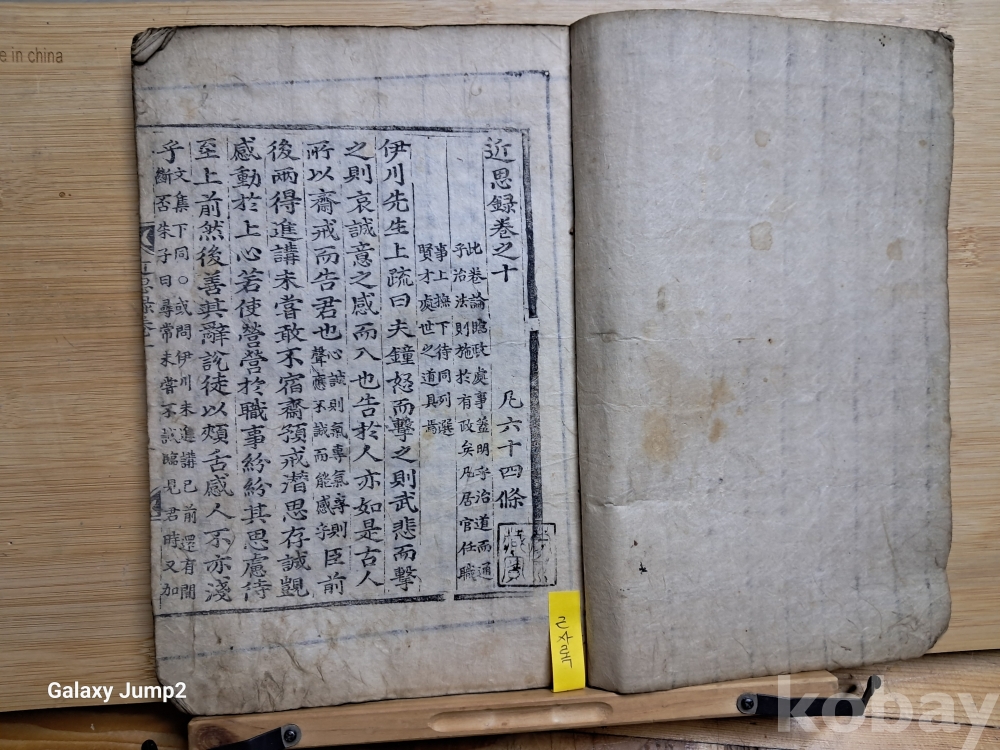 近思錄卷之十 凡六十四條
此卷論臨政處事蓋明乎治道而通
乎治法則施於有政矣凡居官任職
事上撫下待同列選
賢才處世之道具焉
伊川先生上疏曰夫鐘怒而擊之則武悲而擊
之則哀誠意之感而入也告於人亦如是古人
所以齋戒而告君也心誠則氣專氣專則聲應不誠而能感乎臣前
後兩得進講未嘗敢不宿齋預戒潛思存誠覬
感動於上心若使營營於職事紛紛其思慮待
至上前然後善其辭說徒以頰舌感人不亦淺
乎文集下同○或問伊川未進講已前還有間
斷否朱子曰尋常未嘗不誠臨見君時又加
근사록
e in china
Galaxy Jump2
kobay